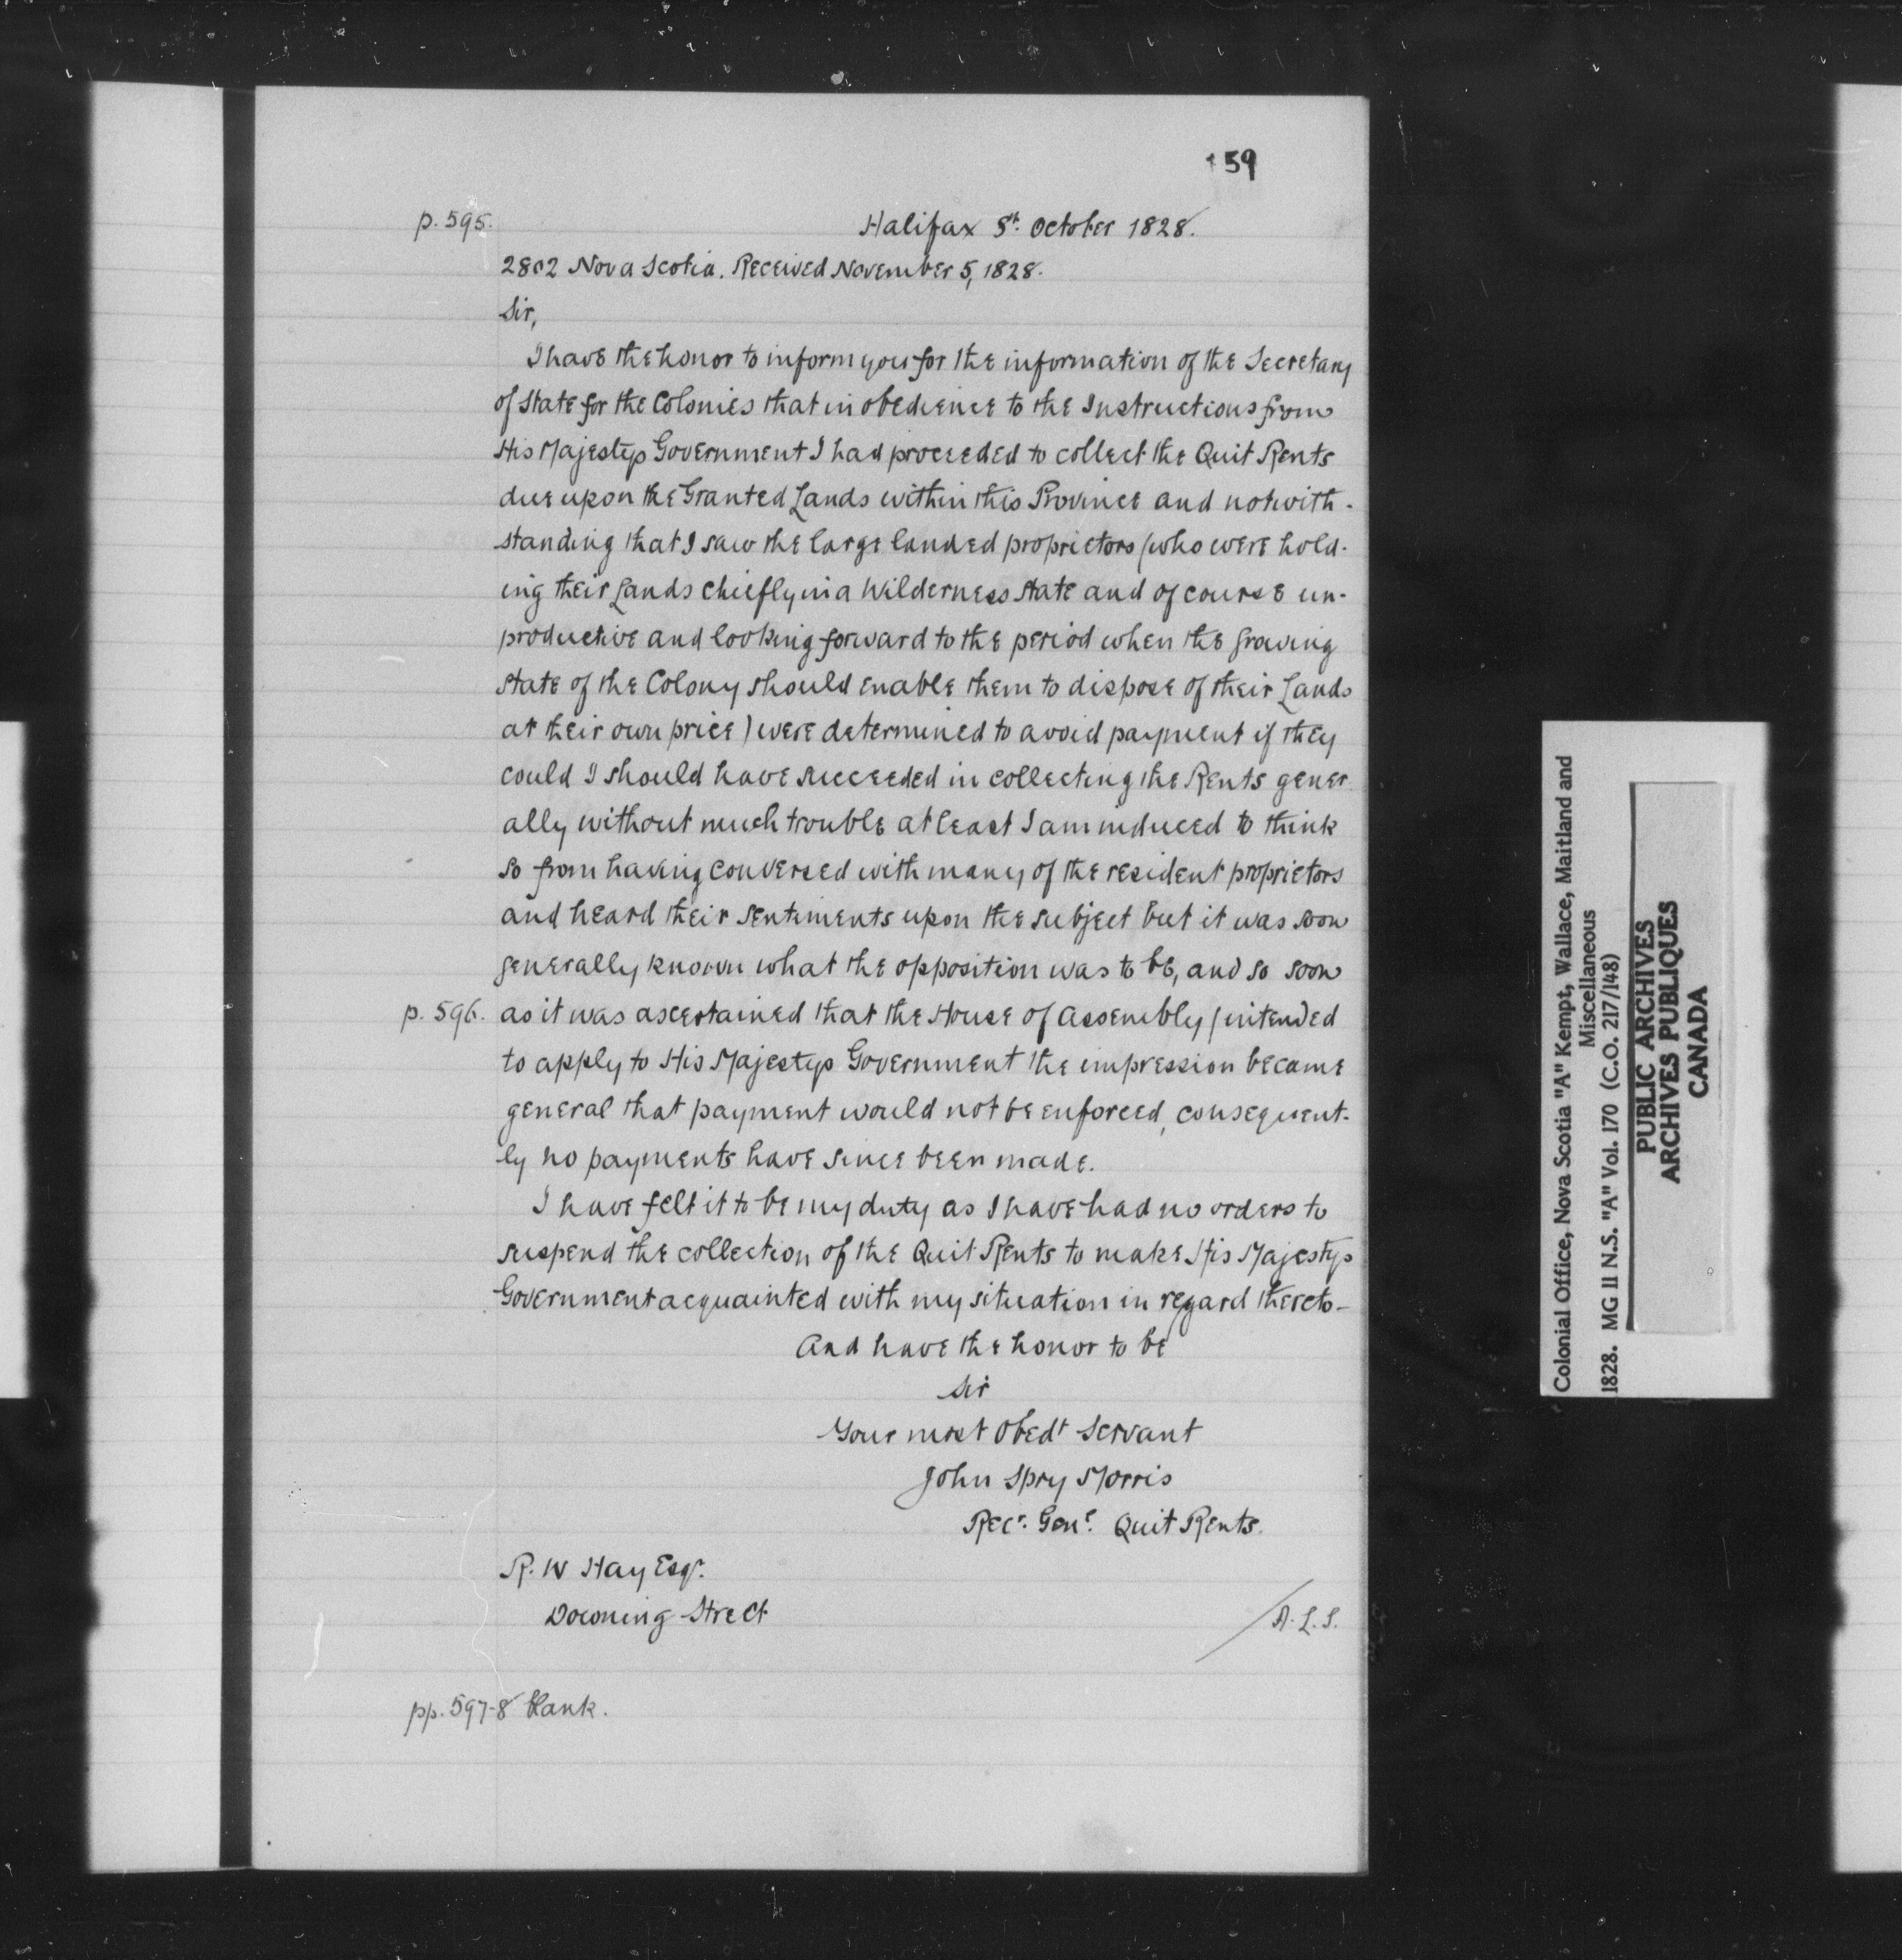 159
p. 595.
Halifax 8th October 1828.
2802 Nova Scotia. Received November 5, 1828.
Sir,
I have the honor to inform you for the information of the Secretary
of State for the Colonies that in obedience to the Instructions from
His Majestys Government I had proceeded to collect the Quit Rents
due upon the Granted Lands within this Province and notwith-
standing that I saw the large landed proprietors (who were hold-
ing their Lands chiefly in a Wilderness state and of course un-
productive and looking forward to the period when the growing
state of the Colony should enable them to dispose of their Lands
at their own price) were determined to avoid payment if they
could I should have succeeded in collecting the Rents gener
ally without much trouble at least I am induced to think
so from having conversed with many of the resident proprietors
and heard their sentiments upon the subject but it was soon
generally known what the opposition was to be, and so soon
p. 596. as it was ascertained that the House of Assembly / intended
to apply to His Majestys Government the impression became
general that payment would not be enforced, consequent-
ly no payments have since been made.
I have felt it to be my duty as I have had no orders to
suspend the collection of the Quit Rents to make His Majestys
Government acquainted with my situation in regard thereto-
And have the honor to be
Sir
Your most Obedt Servant
John Spry Morris
Recr. Genl. Quit Rents.
R. W Hay Esqr.
Downing Street
A. L. S.
pp. 597-8 blank.
Colonial Office, Nova Scotia "A" Kempt, Wallace, Maitland and
Miscellaneous
1828. MG 11 N.S. "A" Vol. 170 (C.O. 217/148)
PUBLIC ARCHIVES
ARCHIVES PUBLIQUES
CANADA